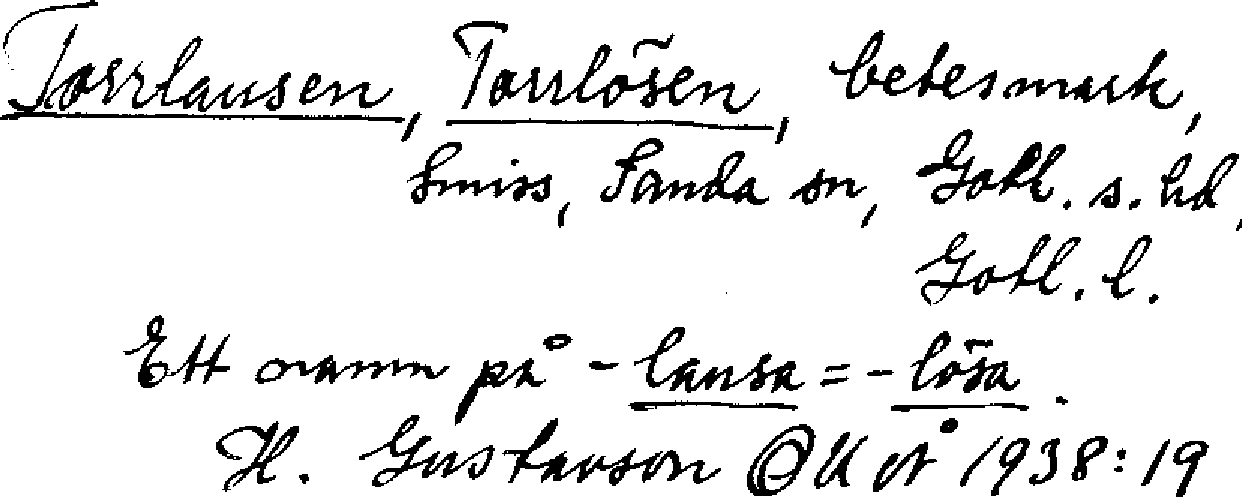 Torrlausen, Torrlösen, betesmark,
Smiss, Sanda sn, Gotl. s. hd,
Gotl. l.
Ett namn på -lausa = -lösa.
H. Gustavson OUÅ 1938:19